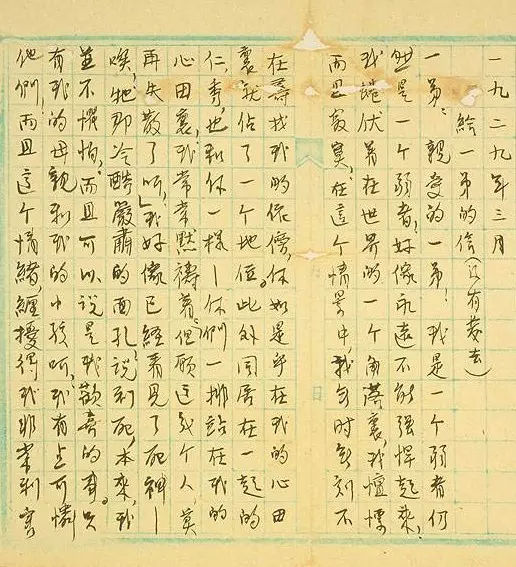 一九二九年三月
給一弟的信(没有發去)
一弟:親愛的一弟!我是一个弱者何
然是一个弱者,好像永遠不能强悍起來,
我蜷伏着在世界的一个角落裏,我恓惶
而且寂寞,在這个情景中,我無时無刻不
在尋找我的偶像,你如是乎在我的心田
裏就佔了一个地位。此外同居在一起的
仁,秀,也和你一樣—你們一排站在我的
心田裏,我常常默禱着:但願這幾个人,莫
再失散了吓,我好像已經看見了死神—
唉,牠那冷酷嚴肅的面孔,说到死,本來,我
並不懼怕,而且可以说是我歡喜的,有只
有我的母親和我的小孩呵,我有点可憐
他們,而且這个情緒,纏擾得我非常利害